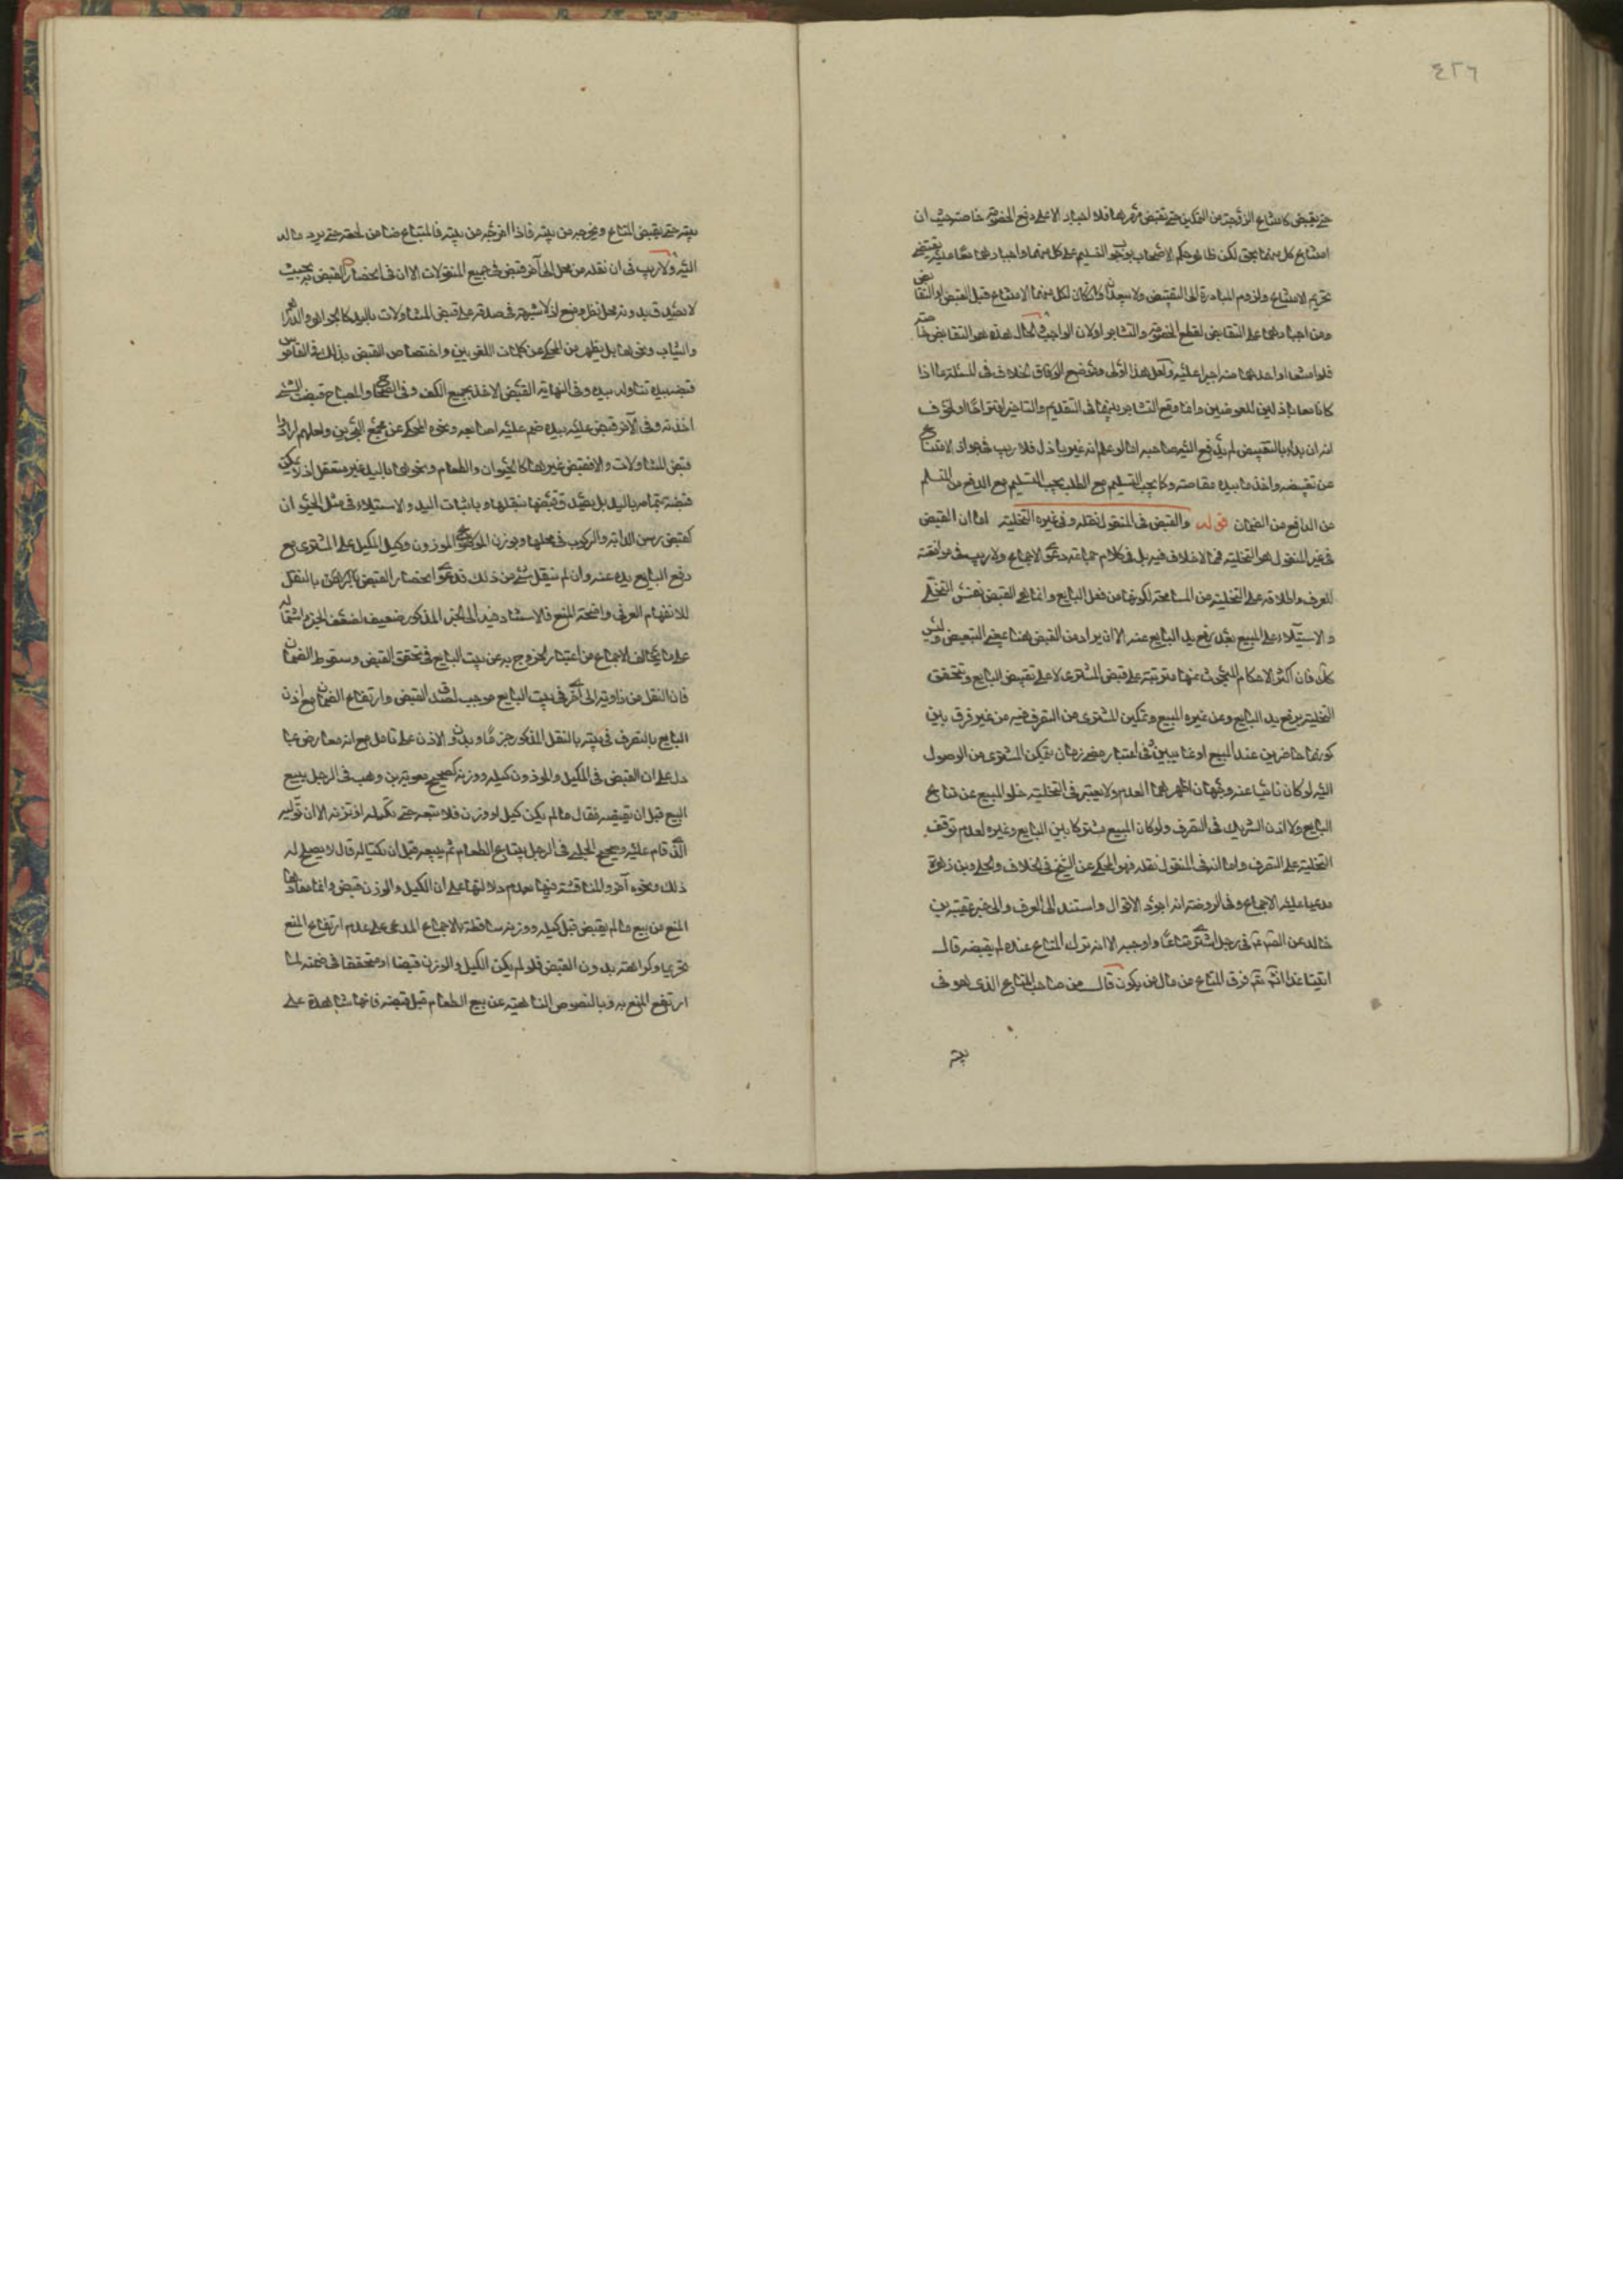 ٤٢٦
حتى يقبض كامتناع الزوجة من التمكين حتى تقبض مهرها فلا اجبار الا على دفع الخصومة خاصة حيث ان
امتناع كل منهما بحق لكن ظاهر حكم الاصحاب بوجوب التسليم على كل منهما واجبارهما معا عليه يقتضى
تحريم الامتناع ولزوم المبادرة الى التقبيض ولا سيما وان كان لكل منهما الامتناع قبل القبض او التقابض
ومن اجبارهما على التقابض لقطع الخصومة والتشاجر اولان الواجب فى الحال هذه هو التقابض خاصة
فلو امتنعا او احدهما منه اجبرا عليه ولعل هذا اولى وموضع الوفاق والخلاف فى المسئلة ما اذا
كانا معا باذلين للعوضين وانما وقع التشاجر بينهما فى التقديم والتاخير التزاما او لخوف
انه ان بداء بالتقبيض لم يدفع اليه صاحبه اما لو علم انه غير باذل فلا ريب فى جواز الامتناع
عن تقبيضه واخذ ما بيده مقاصة وكما يجب التسليم مع الطلب يجب التسليم مع الدفع من المسلم
من الدافع من الضمان قوله والقبض فى المنقول نقله وفى غيره التخلية اما ان القبض
فى غير المنقول هو التخلية فمما لاخلاف فيه بل فى كلام جماعة دعوى الاجماع ولا ريب فى موافقته
للعرف واطلاقه على التخلية من المسامحة لكونها من فعل البايع وانما هى القبض نفس التخلى
والاستيلاء على المبيع بعد رفع يد البايع عنه الا ان يراد من القبض هنا بمعنى التقبيض وليس
كك فان اكثر الاحكام المبحوث عنها مترتبة على قبض المشترى لا على تقبيض البايع وتتحقق
التخلية برفع يد البايع وعن غيره المبيع وتمكين المشترى من التصرف فيه من غير فرق بين
كونهما حاضرين عند المبيع او غايبين وفى اعتبار مضى زمان يتمكن المشترى من الوصول
اليه لو كان نائيا عنه وجهان اظهرهما العدم ولا يعتبر فى التخلية خلو المبيع عن متاع
البايع ولا اذن الشريك فى التصرف ولو كان المبيع مشتركا بين البايع وغيره لعدم توقف
التخلية على التصرف واما انه فى المنقول نقله فهو المحكى عن الشيخ فى الخلاف والحلى وبن زهرة
مدعيا عليه الاجماع وفى الروضة انه اجود الاقوال واستند الى العرف والى خبر عقبة بن
خالد عن الصادق فى رجل اشترى متاعا واوجبه الا انه ترك المتاع عنده لم يقبضه قال
اتيتك غدا انشاء الله فسرق المتاع من مال من يكون قال من صاحب المتاع الذى هو فى
بيته
بيته حتى يقبض المتاع ويخرجه من بيته فاذا اخرجه من بيته فالمبتاع ضامن لحقه حتى يرد ماله
اليه ولاريب فى ان نقله من محل الى آخر قبض فى جميع المنقولات الا ان فى انحصار القبض به بحيث
لا يصدق بدونه محل نظر ومنع اذ لا شبهة فى صدقه على قبض المتناولات باليد كالجواهر والدراهم
والثياب ونحوها بل يظهر من المحكى عن كلمات اللغويين واختصاص القبض بذلك ففى القاموس
قبضه بيده تناوله بيده وفى النهاية القبض الاخذ بجميع الكف وفى الصحاح والمصباح قبضت الشئ
اخذته وفى الآخر قبض عليه بيده ضم عليه اصابعه ونحوه المحكى عن مجمع البحرين ولعلهم ارادوا
قبض المتناولات والا فقبض غيرها كالحيوان والطعام ونحوهما باليد غير متعقل اذ لا يمكن
قبضه بتمامه باليد بل يصدق قبضها بنقلها وباثبات اليد والاستيلاء فى مثل الحيوان
كقبض رسن الدابة والركوب فى محلها وبوزن الموزون وكيل المكيل على المشترى مع
رفع البايع يده عنه وان لم ينقل شئ من ذلك فدعوى انحصار القبض بالنقل
للانفهام العرفى واضحة المنع فالاستشهاد فيه الى الخبر المذكور ضعيف لضعف الخبر واشتماله
على ما يخالف الاجماع من اعتبار الخروج به عن بيت البايع فى تحقق القبض وسقوط الضمان
فان النقل من زاوية الى اخرى فى بيت البايع موجب لصدق القبض وارتفاع الضمان مع اذن
البايع بالتصرف فى بيته بالنقل المذكور جزما وبدون الاذن على تامل مع انه معارض بما
دل على ان القبض فى المكيل والموزون كيله ووزنه كصحيح معوية بن وهب فى الرجل يبيع
البيع قبل ان يقبضه فقال ما لم يكن كيل او وزن فلا تبعه حتى تكيله او تزنه الا ان توليه
الذى قام عليه وصحيح الحلبى فى الرجل يبتاع الطعام ثم يبيعه قبل ان يكتاله قال لا يصلح له
ذلك ونحوه آخر والمناقشة فيها بعدم دلالتها على ان الكيل والوزن قبض وانما مفادها
المنع من بيع ما لم يقبض قبل كيله ووزنه ساقطة بالاجماع المدعى على عدم ارتفاع المنع
تحريما وكراهة بدون القبض فلو لم يكن الكيل والوزن قبضا او متحققا فى ضمنه لما
ارتفع المنع به وبالنصوص الناهية عن بيع الطعام قبل قبضه فانها شاهدة على